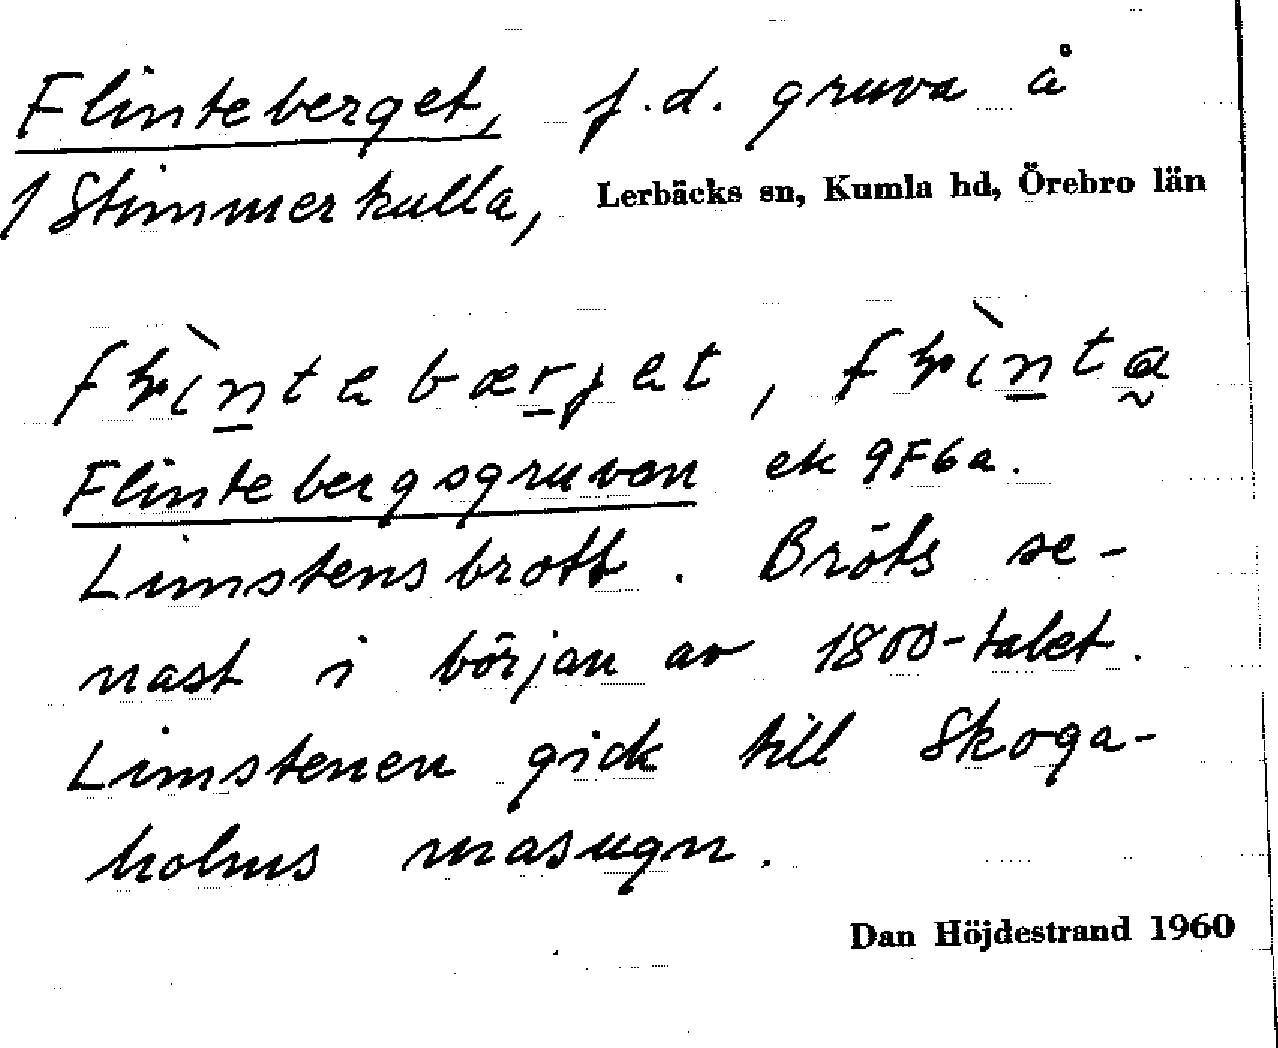 Flinteberget, f.d. gruva å
1 Stimmerkulla, Lerbäcks sn, Kumla hd, Örebro län
Flintebergsgruvan ek 9F6a.
Limstensbrott. Bröts se-
nast i början av 1800-talet.
Limstenen gick till Skoga-
holms masugn.
Dan Höjdestrand 1960